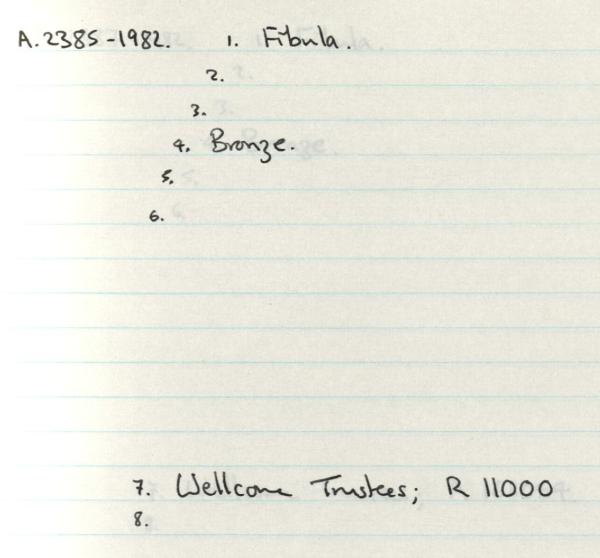 A.2385-1982. 1. Fibula.
2.
3.
4. Bronze.
5.
6.
7. Wellcome Trustees; R 11000
8.